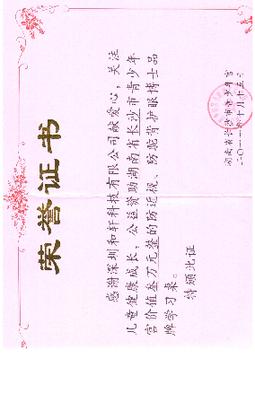 荣誉证书
感谢深圳和轩科技有限公司献爱心，关注
儿童健康成长，公益资助湖南省长沙市青少年
宫价值叁万元整的防近视、防驼背护眼博士品
牌学习桌。
特颁此证
湖南省长沙市青少年宫
二〇一一年十月十五日